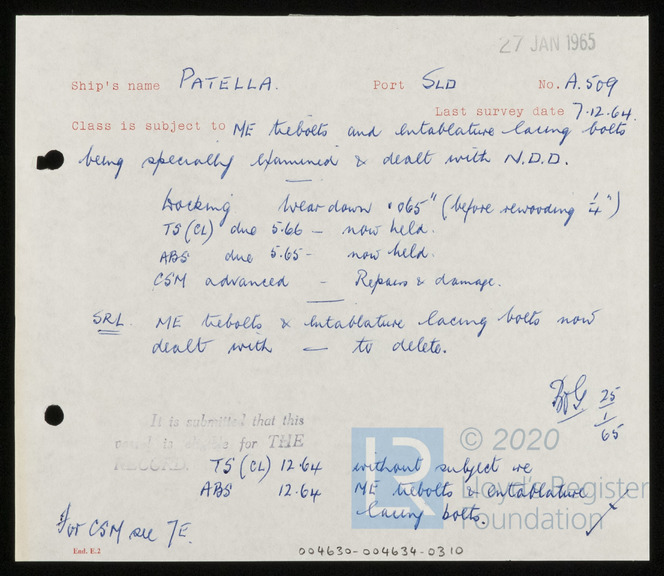 27 JAN 1965
Ship's name PATELLA. Port SLD No. A.509
Last survey date 7.12.64.
Class is subject to ME tiebolts and entablature lacing bolts
being specially examined & dealt with N.D.D.
Docking Wear down .065" (before rewooding 1/4")
TS (CL) due 5.66 - now held.
ABS due 5.65 - now held.
CSM advanced - Repairs & damage.
SRL ME tiebolts & entablature lacing bolts now
dealt with — to delete.
25/1/65
It is submitted that this
vessel is eligible for THE
RECORD.
TS (CL) 12.64 without subject re
ABS 12.64 ME tiebolts & entablature
lacing bolts.
For CSM see 7E.
End. E.2
004630-004634-0310
LR
© 2020
Lloyd's Register
Foundation